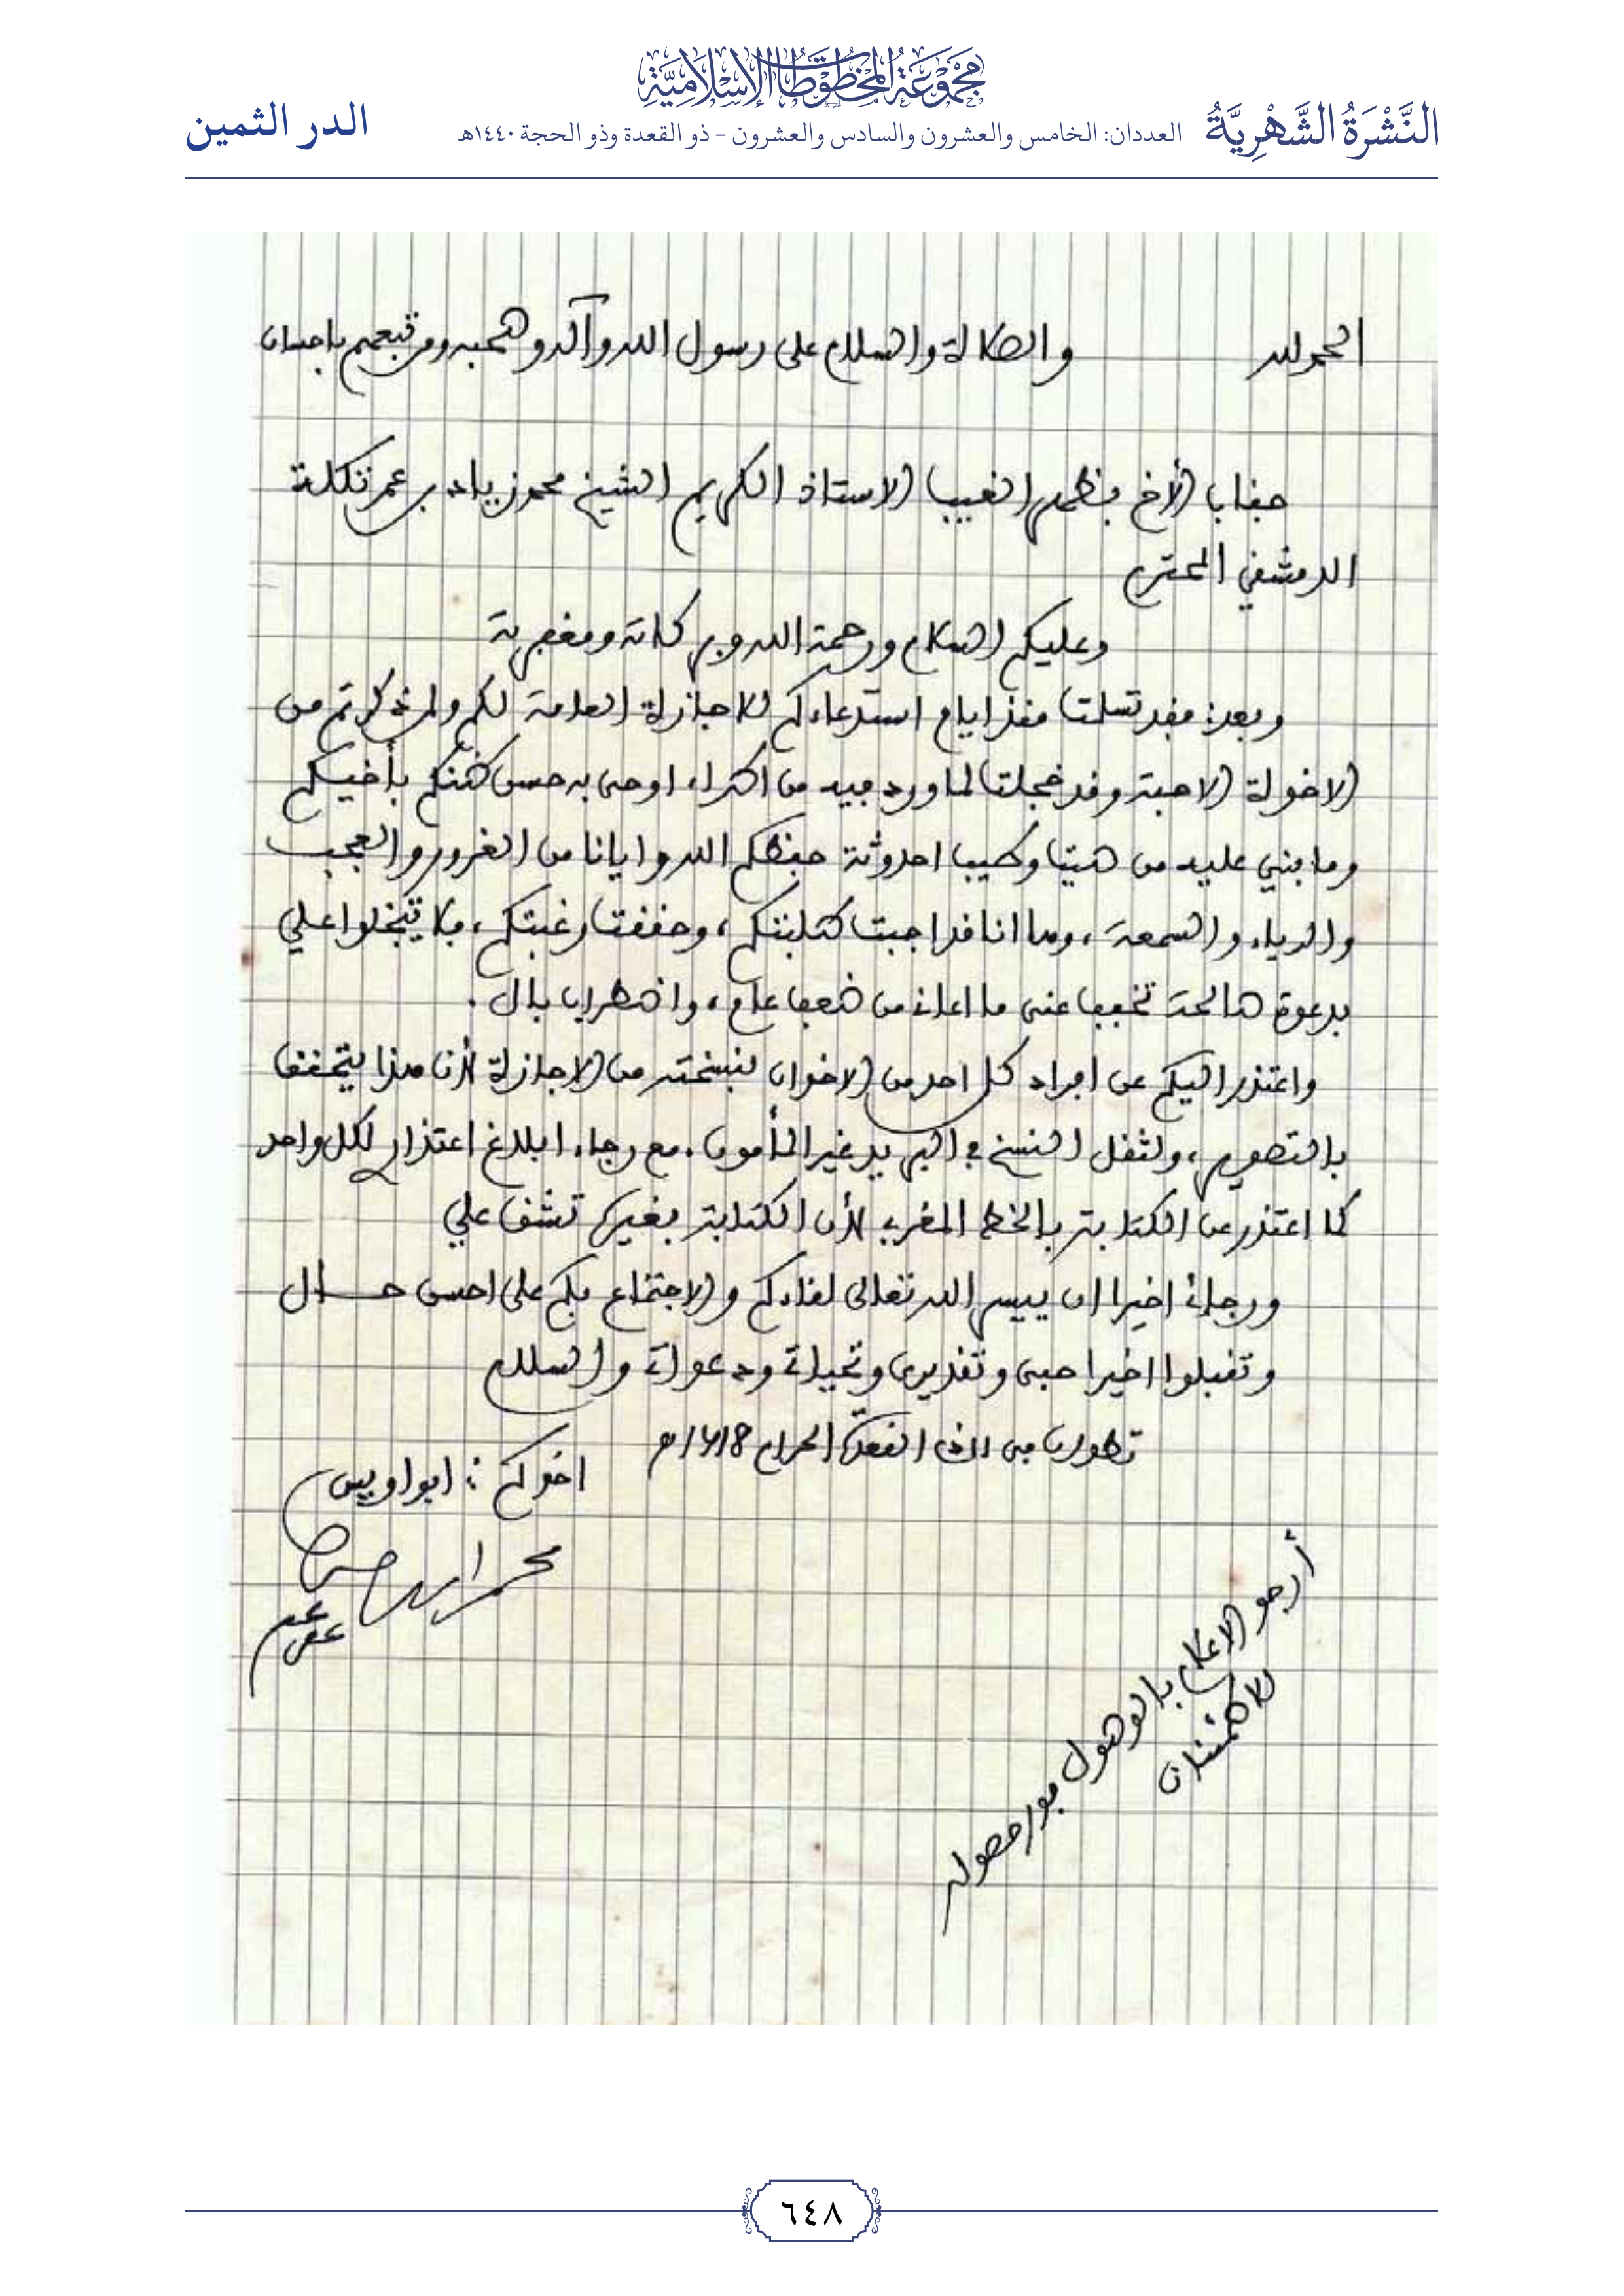 مَجْمُوعَةُ المَخْطُوطَاتِ الإِسْلَامِيَّةِ
النَّشْرَةُ الشَّهْرِيَّةُ
العددان: الخامس والعشرون والسادس والعشرون - ذو القعدة وذو الحجة ١٤٤٠هـ
الدر الثمين
الحمد لله والصلاة والسلام على رسول الله وآله وصحبه ومن تبعهم بإحسان
جناب الأخ بظهر الغيب الاستاذ الكريم الشيخ محمد زياد بن عمر تكلة
الدمشقي المحترم
وعليكم السلام ورحمة الله وبركاته ومغفرته
وبعد: فقد تسلمت منذ أيام استدعاءكم للاجازة العامة لكم ولمن ذكرتم من
الاخوة الاحبة وقد خجلت لما ورد فيه من اطراء، اوحى به حسن ظنكم بأخيكم
وما بني عليه من صيت وطيب احدوثة حفظكم الله وايانا من الغرور والعجب
والرياء والسمعة، وها انا قد اجبت طلبتكم، وحققت رغبتكم، فلا تبخلوا علي
بدعوة صالحة تخفف عني ما اعاني من ضعف عام، واضطراب بال.
واعتذر اليكم عن افراد كل احد من الاخوان بنسخته من الاجازة لأن هذا يتحقق
بالتصوير، ولثقل النسخ في البريد غير المأمون. مع رجاء ابلاغ اعتذاري لكل واحد
كما اعتذر عن الكتابة بالخط المغربي لأن الكتابة بغيره تشق علي
ورجائي اخيرا ان ييسر الله تعالى لقاءكم والاجتماع بكم على احسن حال
وتقبلوا اخيرا حبي وتقديري وتحياتي ودعواتي والسلام
تطوان في 11 ذي القعدة الحرام 1418هـ
اخوكم: ابو اويس
محمد
عفي عنه
أرجو الاعلام بالوصول فور حصوله
للاطمئنان
٦٤٨